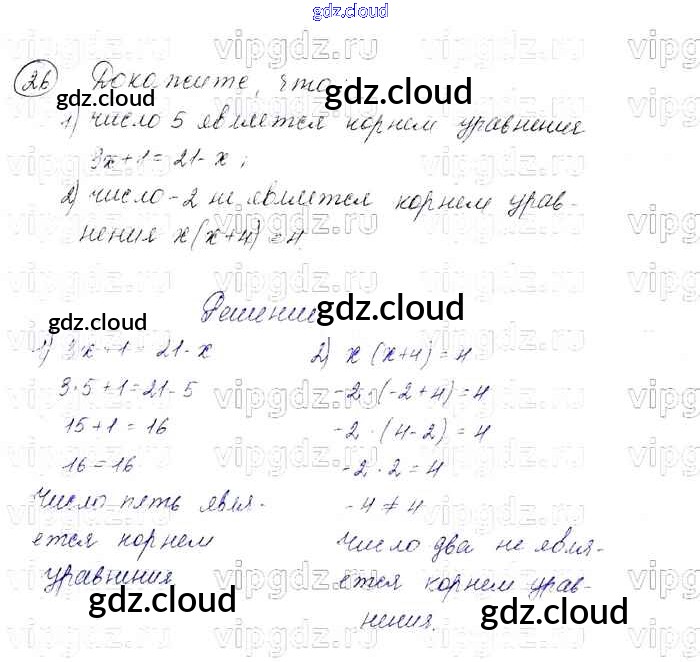 gdz.cloud
26 Докажите, что:
1) число 5 является корнем уравнения
3x+1=21-x;
2) число -2 не является корнем урав-
нения x(x+4)=4.
Решение
1) 3x+1=21-x
3·5+1=21-5
15+1=16
16=16
Число пять явля-
ется корнем
уравнения
2) x(x+4)=4
-2·(-2+4)=4
-2·(4-2)=4
-2·2=4
-4≠4
Число два не явля-
ется корнем урав-
нения.
vipgdz.ru
gdz.cloud